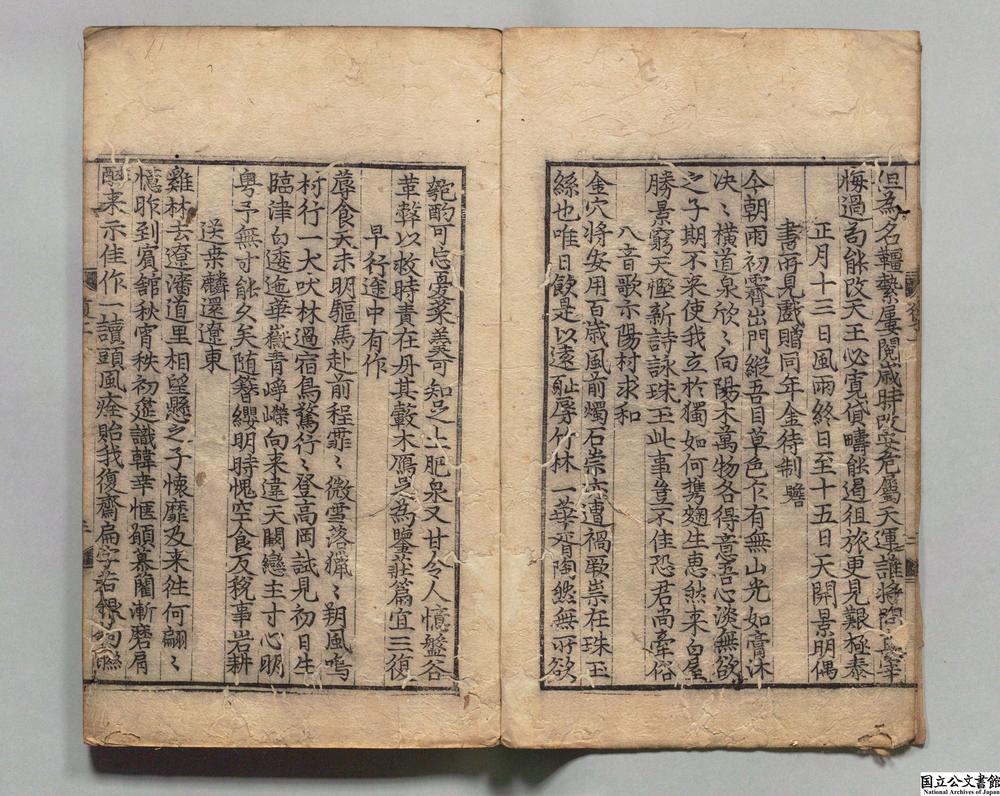 但為名韁繫屢閱歲時改安危屬天運誰將
悔過苟能改天王必寬貸疇能遏徂旅更見艱極泰
正月十三日風雨終日至十五日天開景明偶
書所見戲贈同年金待制瞻
今朝雨初霽出門縱吾目草色乍有無山光如膏沐
決〻橫道泉欣〻向陽木萬物各得意吾心淡無欲
之子期不來使我立於獨如何携麴生惠然来白屋
勝景窮天慳新詩詠珠玉此事豈不佳恐君尚牽俗
八音歌示陽村求和
金穴将安用百歲風前燭石崇亦遭禍厥崇在珠玉
絲也唯日飲是以遠耻辱竹林一華胥陶然無所欲
匏酌可忘憂菜羹可知足土肥泉又甘令人憶盤谷
革聲以救時責在丹其轂木鴈足為鑒莊篇宜三復
早行途中有作
蓐食天未明驅馬赴前程霏〻微雪落獵〻朔風鳴
村行一犬吠林過宿鳥驚行〻登高岡試見初日生
臨津白逶迤華嶽青崢嶸向来違天闕戀主寸心明
粤予無寸能久矣随簪纓明時愧空食反税事岩耕
送桒麟還遼東
雞林去遼瀋道里相望懸之子懷靡及来往何翩〻
憶昨到賓舘秋宵秩初筵識韓幸愜願慕藺漸磨肩
酣来示佳作一讀頭風痊貽我復齋扁字若銀鉤聮
復二